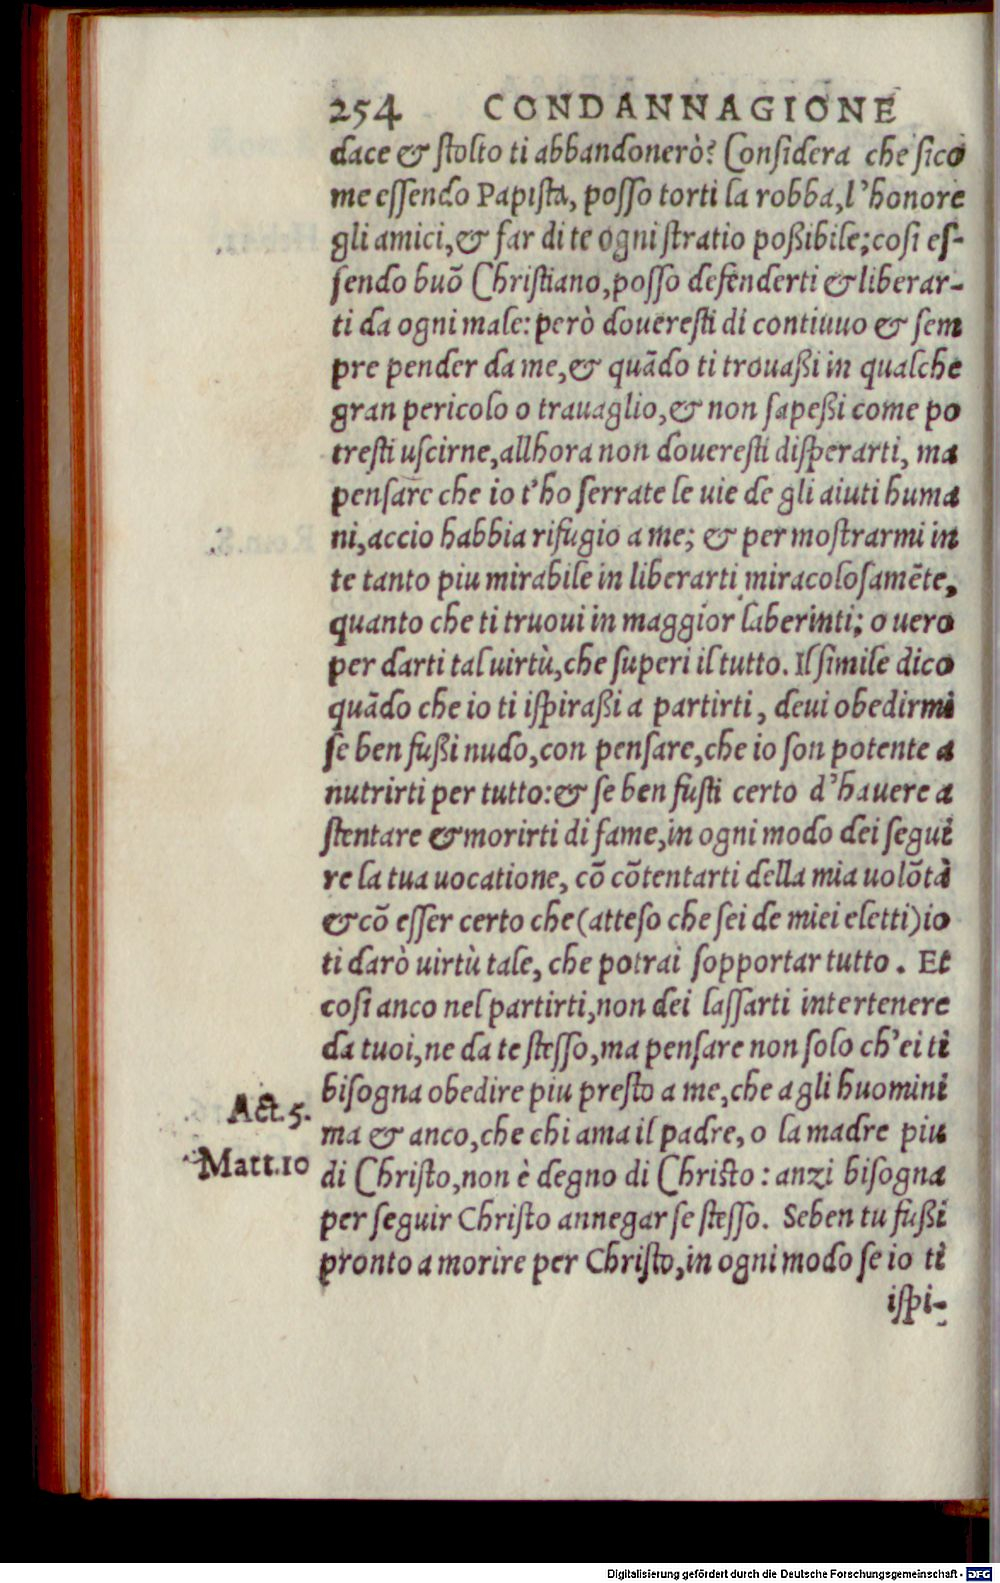 254 CONDANNAGIONE
dace & stolto ti abbandonerò? Considera che sico
me essendo Papista, posso torti la robba, l'honore
gli amici, & far di te ogni stratio poßibile; cosi es-
sendo buõ Christiano, posso defenderti & liberar-
ti da ogni male: però doueresti di contiuuo & sem
pre pender da me, & quãdo ti trouaßi in qualche
gran pericolo o trauaglio, & non sapeßi come po
tresti uscirne, allhora non doueresti disperarti, ma
pensare che io t'ho serrate le uie de gli aiuti huma
ni, accio habbia rifugio a me; & per mostrarmi in
te tanto piu mirabile in liberarti miracolosamẽte,
quanto che ti truoui in maggior laberinti; o uero
per darti tal uirtù, che superi il tutto. Il simile dico
quãdo che io ti ispiraßi a partirti, deui obedirmi
se ben fußi nudo, con pensare, che io son potente a
nutrirti per tutto: & se ben fusti certo d'hauere a
stentare & morirti di fame, in ogni modo dei segui
re la tua uocatione, cõ cõtentarti della mia uolõtà
& cõ esser certo che (atteso che sei de miei eletti) io
ti darò uirtù tale, che potrai sopportar tutto. Et
cosi anco nel partirti, non dei lassarti intertenere
da tuoi, ne da te stesso, ma pensare non solo ch'ei ti
bisogna obedire piu presto a me, che a gli huomini
Act. 5.
ma & anco, che chi ama il padre, o la madre piu
Matt. 10
di Christo, non è degno di Christo: anzi bisogna
per seguir Christo annegar se stesso. Seben tu fußi
pronto a morire per Christo, in ogni modo se io ti
ispi-
Digitalisierung gefördert durch die Deutsche Forschungsgemeinschaft - DFG